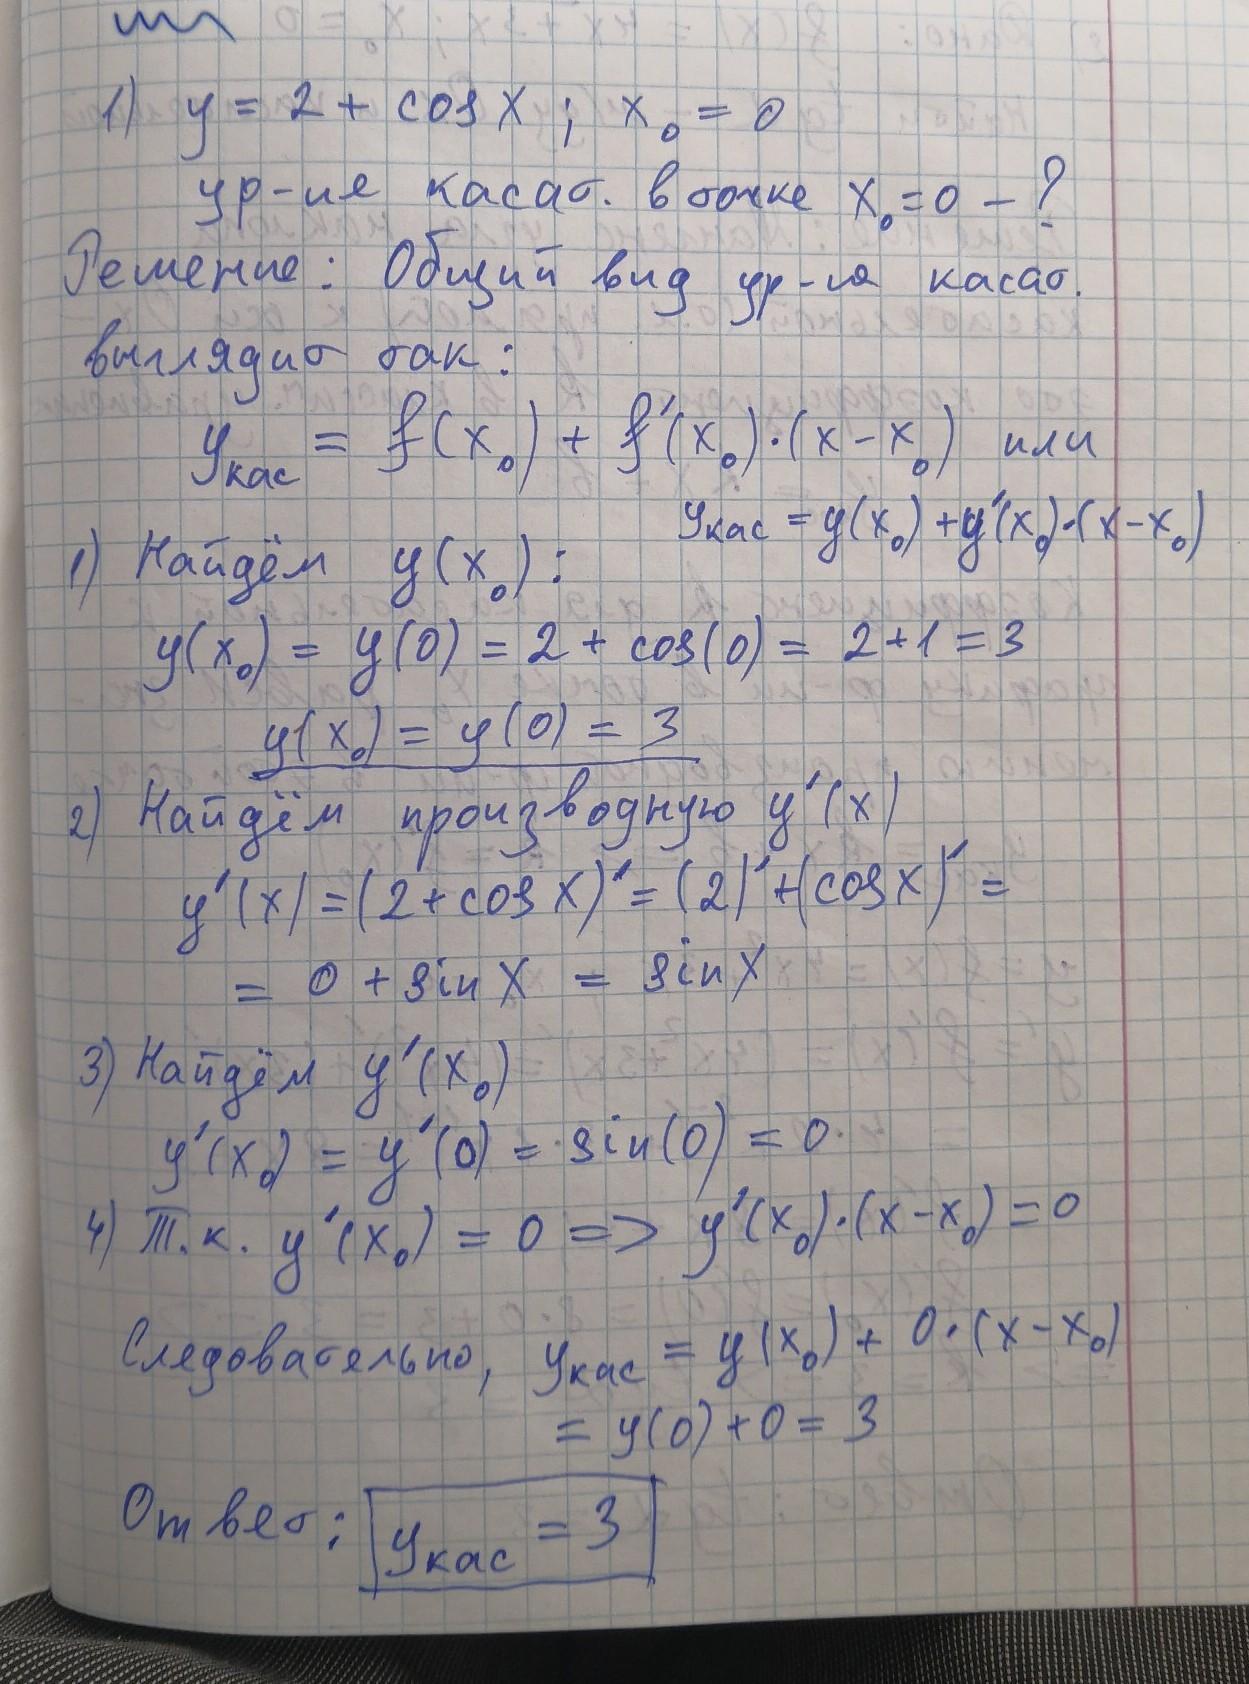 1) y = 2 + cos x ; x₀ = 0
ур-ие касат. в точке x₀ = 0 – ?
Решение: Общий вид ур-ия касат.
выглядит так:
yкас = f(x₀) + f′(x₀)·(x – x₀) или
yкас = y(x₀) + y′(x₀)·(x – x₀)
1) Найдём y(x₀):
y(x₀) = y(0) = 2 + cos(0) = 2 + 1 = 3
y(x₀) = y(0) = 3
2) Найдём производную y′(x)
y′(x) = (2 + cos x)′ = (2)′ + (cos x)′ =
= 0 + sin x = sin x
3) Найдём y′(x₀)
y′(x₀) = y′(0) = sin(0) = 0
4) Т.к. y′(x₀) = 0 => y′(x₀)·(x – x₀) = 0
Следовательно, yкас = y(x₀) + 0·(x – x₀)
= y(0) + 0 = 3
Ответ: yкас = 3